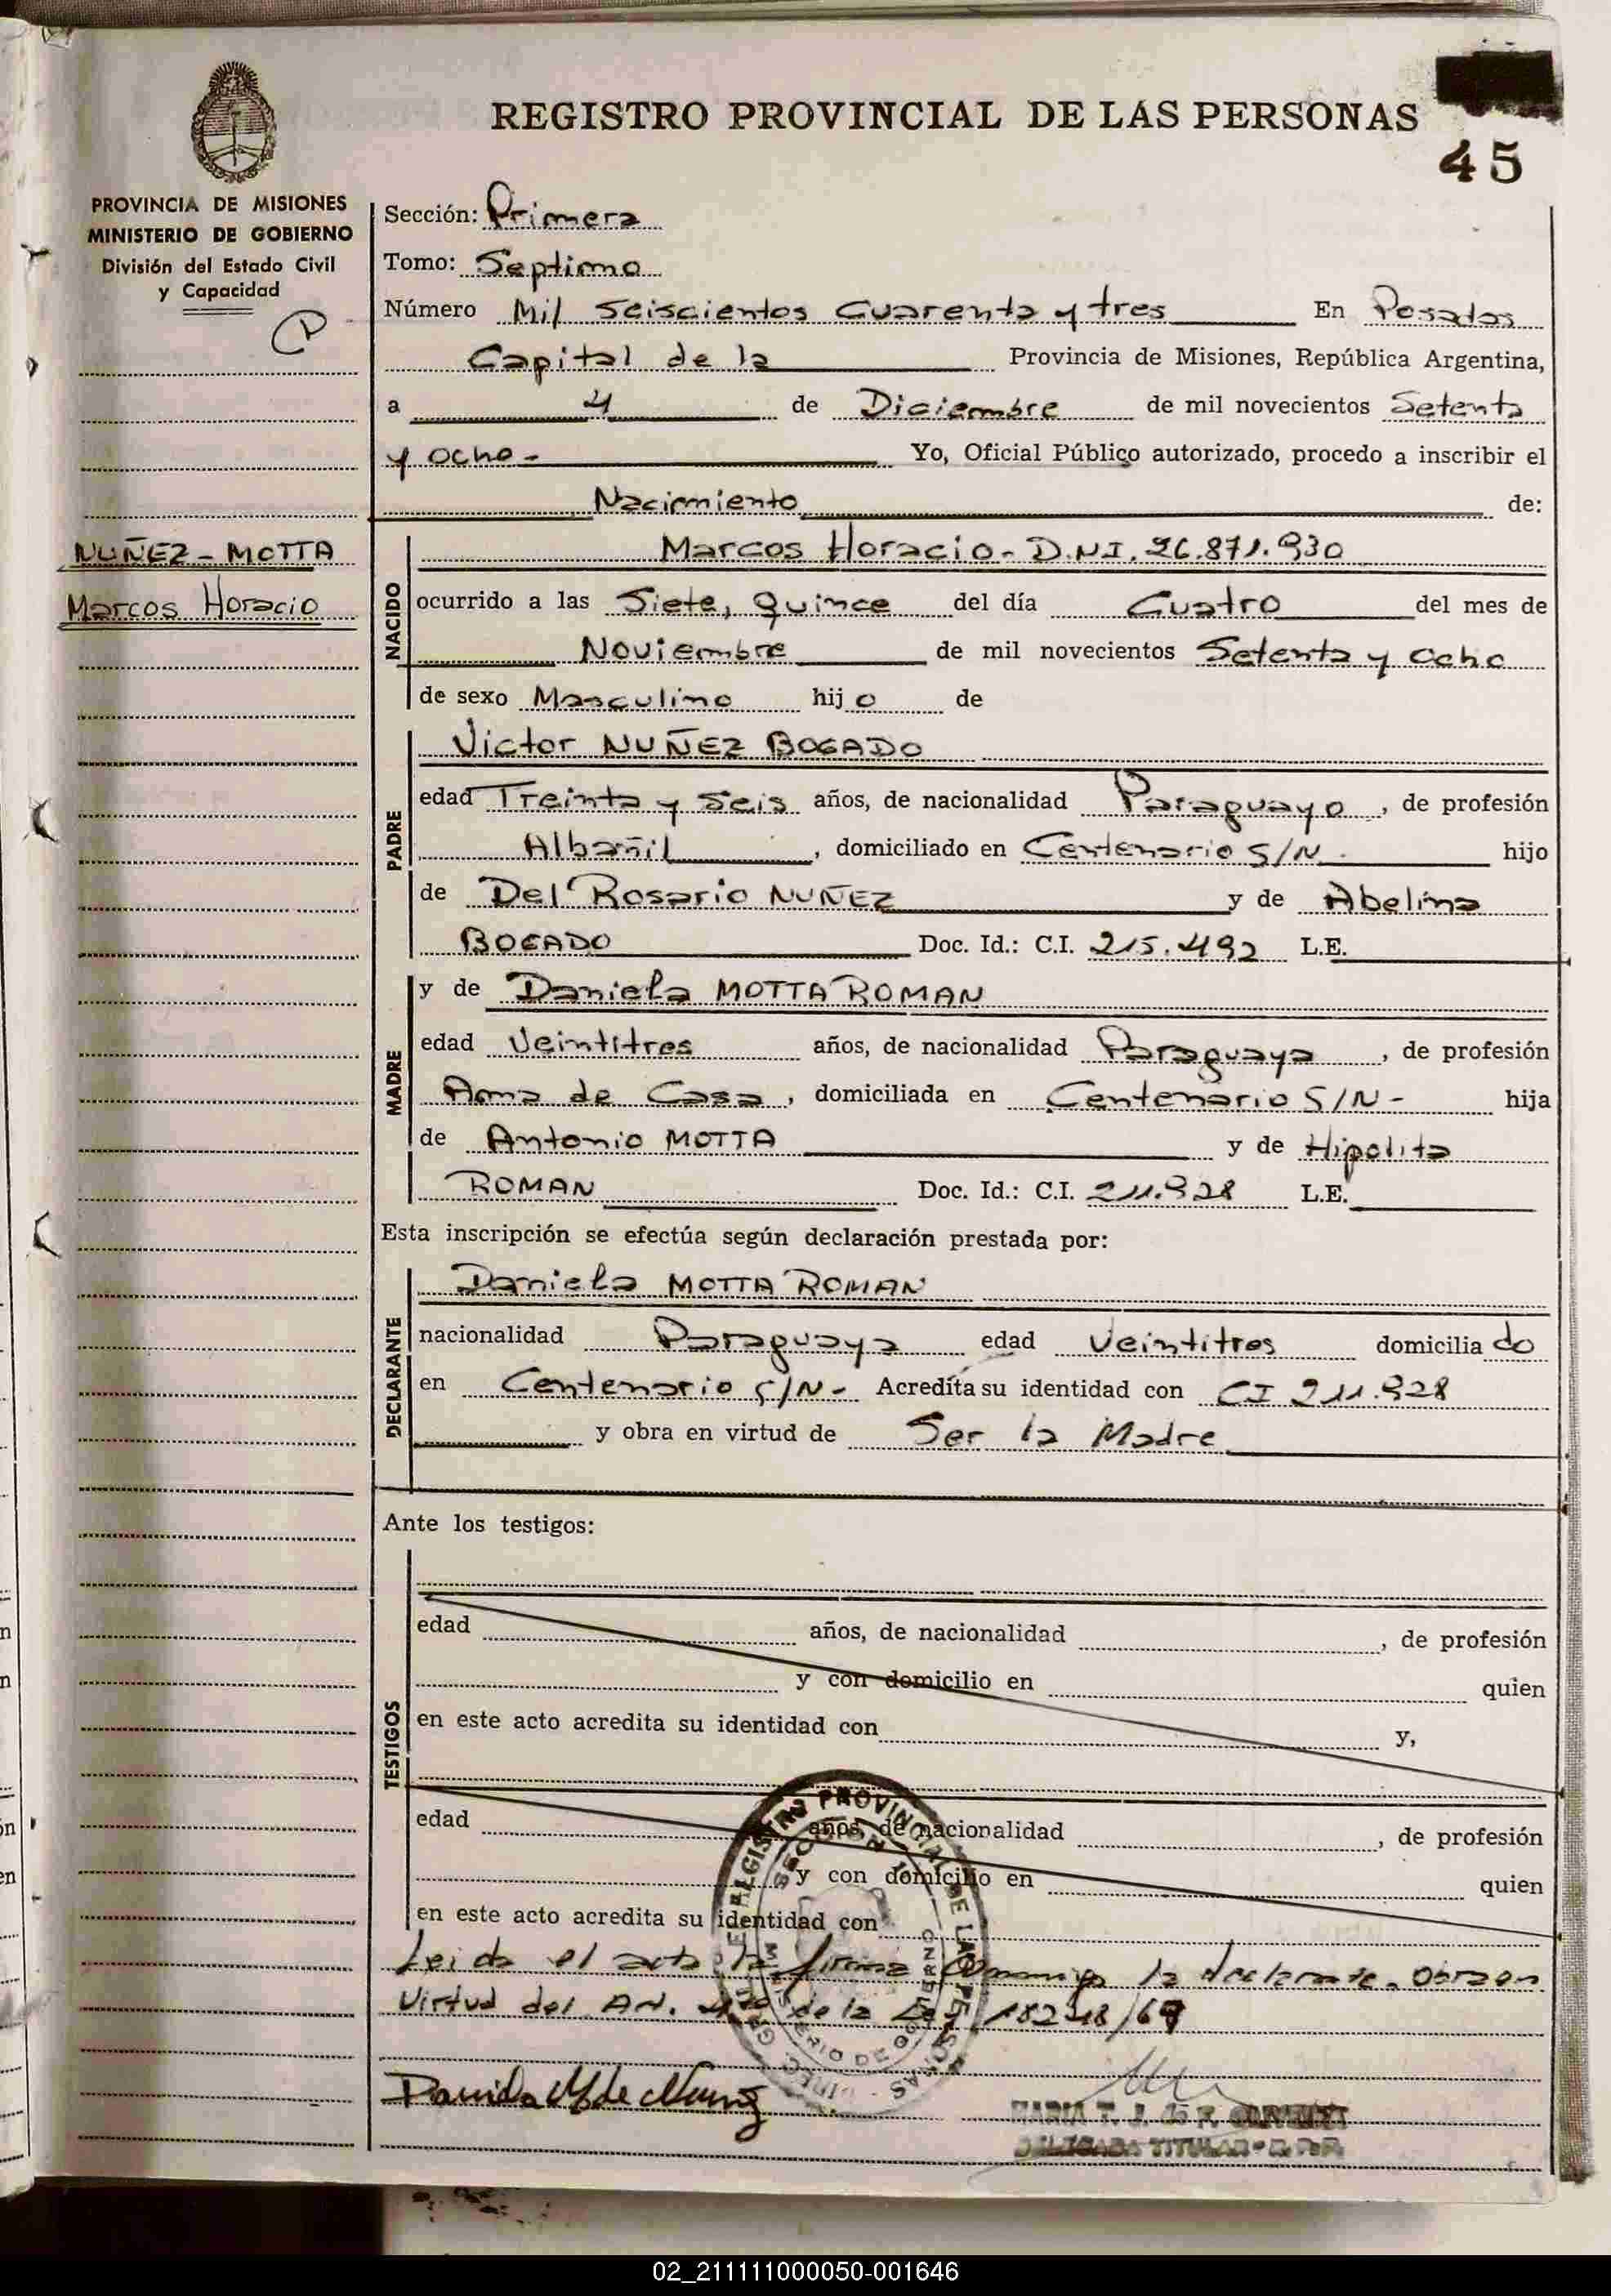 REGISTRO PROVINCIAL DE LAS PERSONAS
45
PROVINCIA DE MISIONES
MINISTERIO DE GOBIERNO
División del Estado Civil
y Capacidad
NUÑEZ - MOTTA
Marcos Horacio
Sección: Primera
Tomo: Septimo
Número Mil Seiscientos Cuarenta y tres En Posadas
Capital de la Provincia de Misiones, República Argentina,
a 4 de Diciembre de mil novecientos Setenta
y ocho - Yo, Oficial Público autorizado, procedo a inscribir el
Nacimiento de:
NACIDO
Marcos Horacio - D.N.I. 26.871.930
ocurrido a las Siete, Quince del día Cuatro del mes de
Noviembre de mil novecientos Setenta y Ocho
de sexo Masculino hijo de
PADRE
Victor NUÑEZ BOGADO
edad Treinta y Seis años, de nacionalidad Paraguayo, de profesión
Albañil, domiciliado en Centenario S/N. hijo
de Del Rosario NUÑEZ y de Abelina
BOGADO Doc. Id.: C.I. 215.492 L.E.
MADRE
y de Daniela MOTTA ROMAN
edad Veintitres años, de nacionalidad Paraguaya, de profesión
Ama de Casa, domiciliada en Centenario S/N - hija
de Antonio MOTTA y de Hipolita
ROMAN Doc. Id.: C.I. 211.928 L.E.
Esta inscripción se efectúa según declaración prestada por:
DECLARANTE
Daniela MOTTA ROMAN
nacionalidad Paraguaya edad Veintitres domiciliado
en Centenario S/N - Acredita su identidad con CI 211.928
y obra en virtud de Ser la Madre
Ante los testigos:
TESTIGOS
edad años, de nacionalidad , de profesión
y con domicilio en quien
en este acto acredita su identidad con y,
edad años, de nacionalidad , de profesión
y con domicilio en quien
en este acto acredita su identidad con
Leida el acta la firma conmigo la declarante. Obra en
Virtud del Art. de la Ley 18248/69
REGISTRO PROVINCIAL DE LAS PERSONAS
MINISTERIO DE GOBIERNO
MARIA T. J. de F.
DELEGADA TITULAR - R. P. P.
02_211111000050-001646